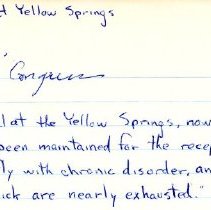 t Yellow Springs
"
Congress
l at the Yellow Springs, now
been maintained for the recep
ly with chronic disorder, an
ick are nearly exhausted."